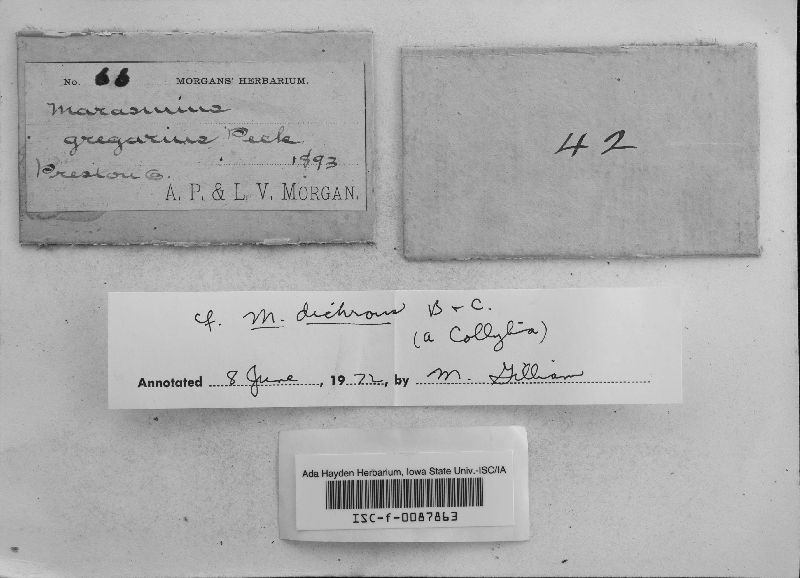 No. 66 MORGANS' HERBARIUM.
Marasmius
gregarius Peck
1893
Preston O.
A. P. & L. V. MORGAN.
42
cf. M. dichrous B + C.
(a Collybia)
Annotated 8 June, 1972, by M. Gilliam
Ada Hayden Herbarium, Iowa State Univ.-ISC/IA
ISC-f-0087863